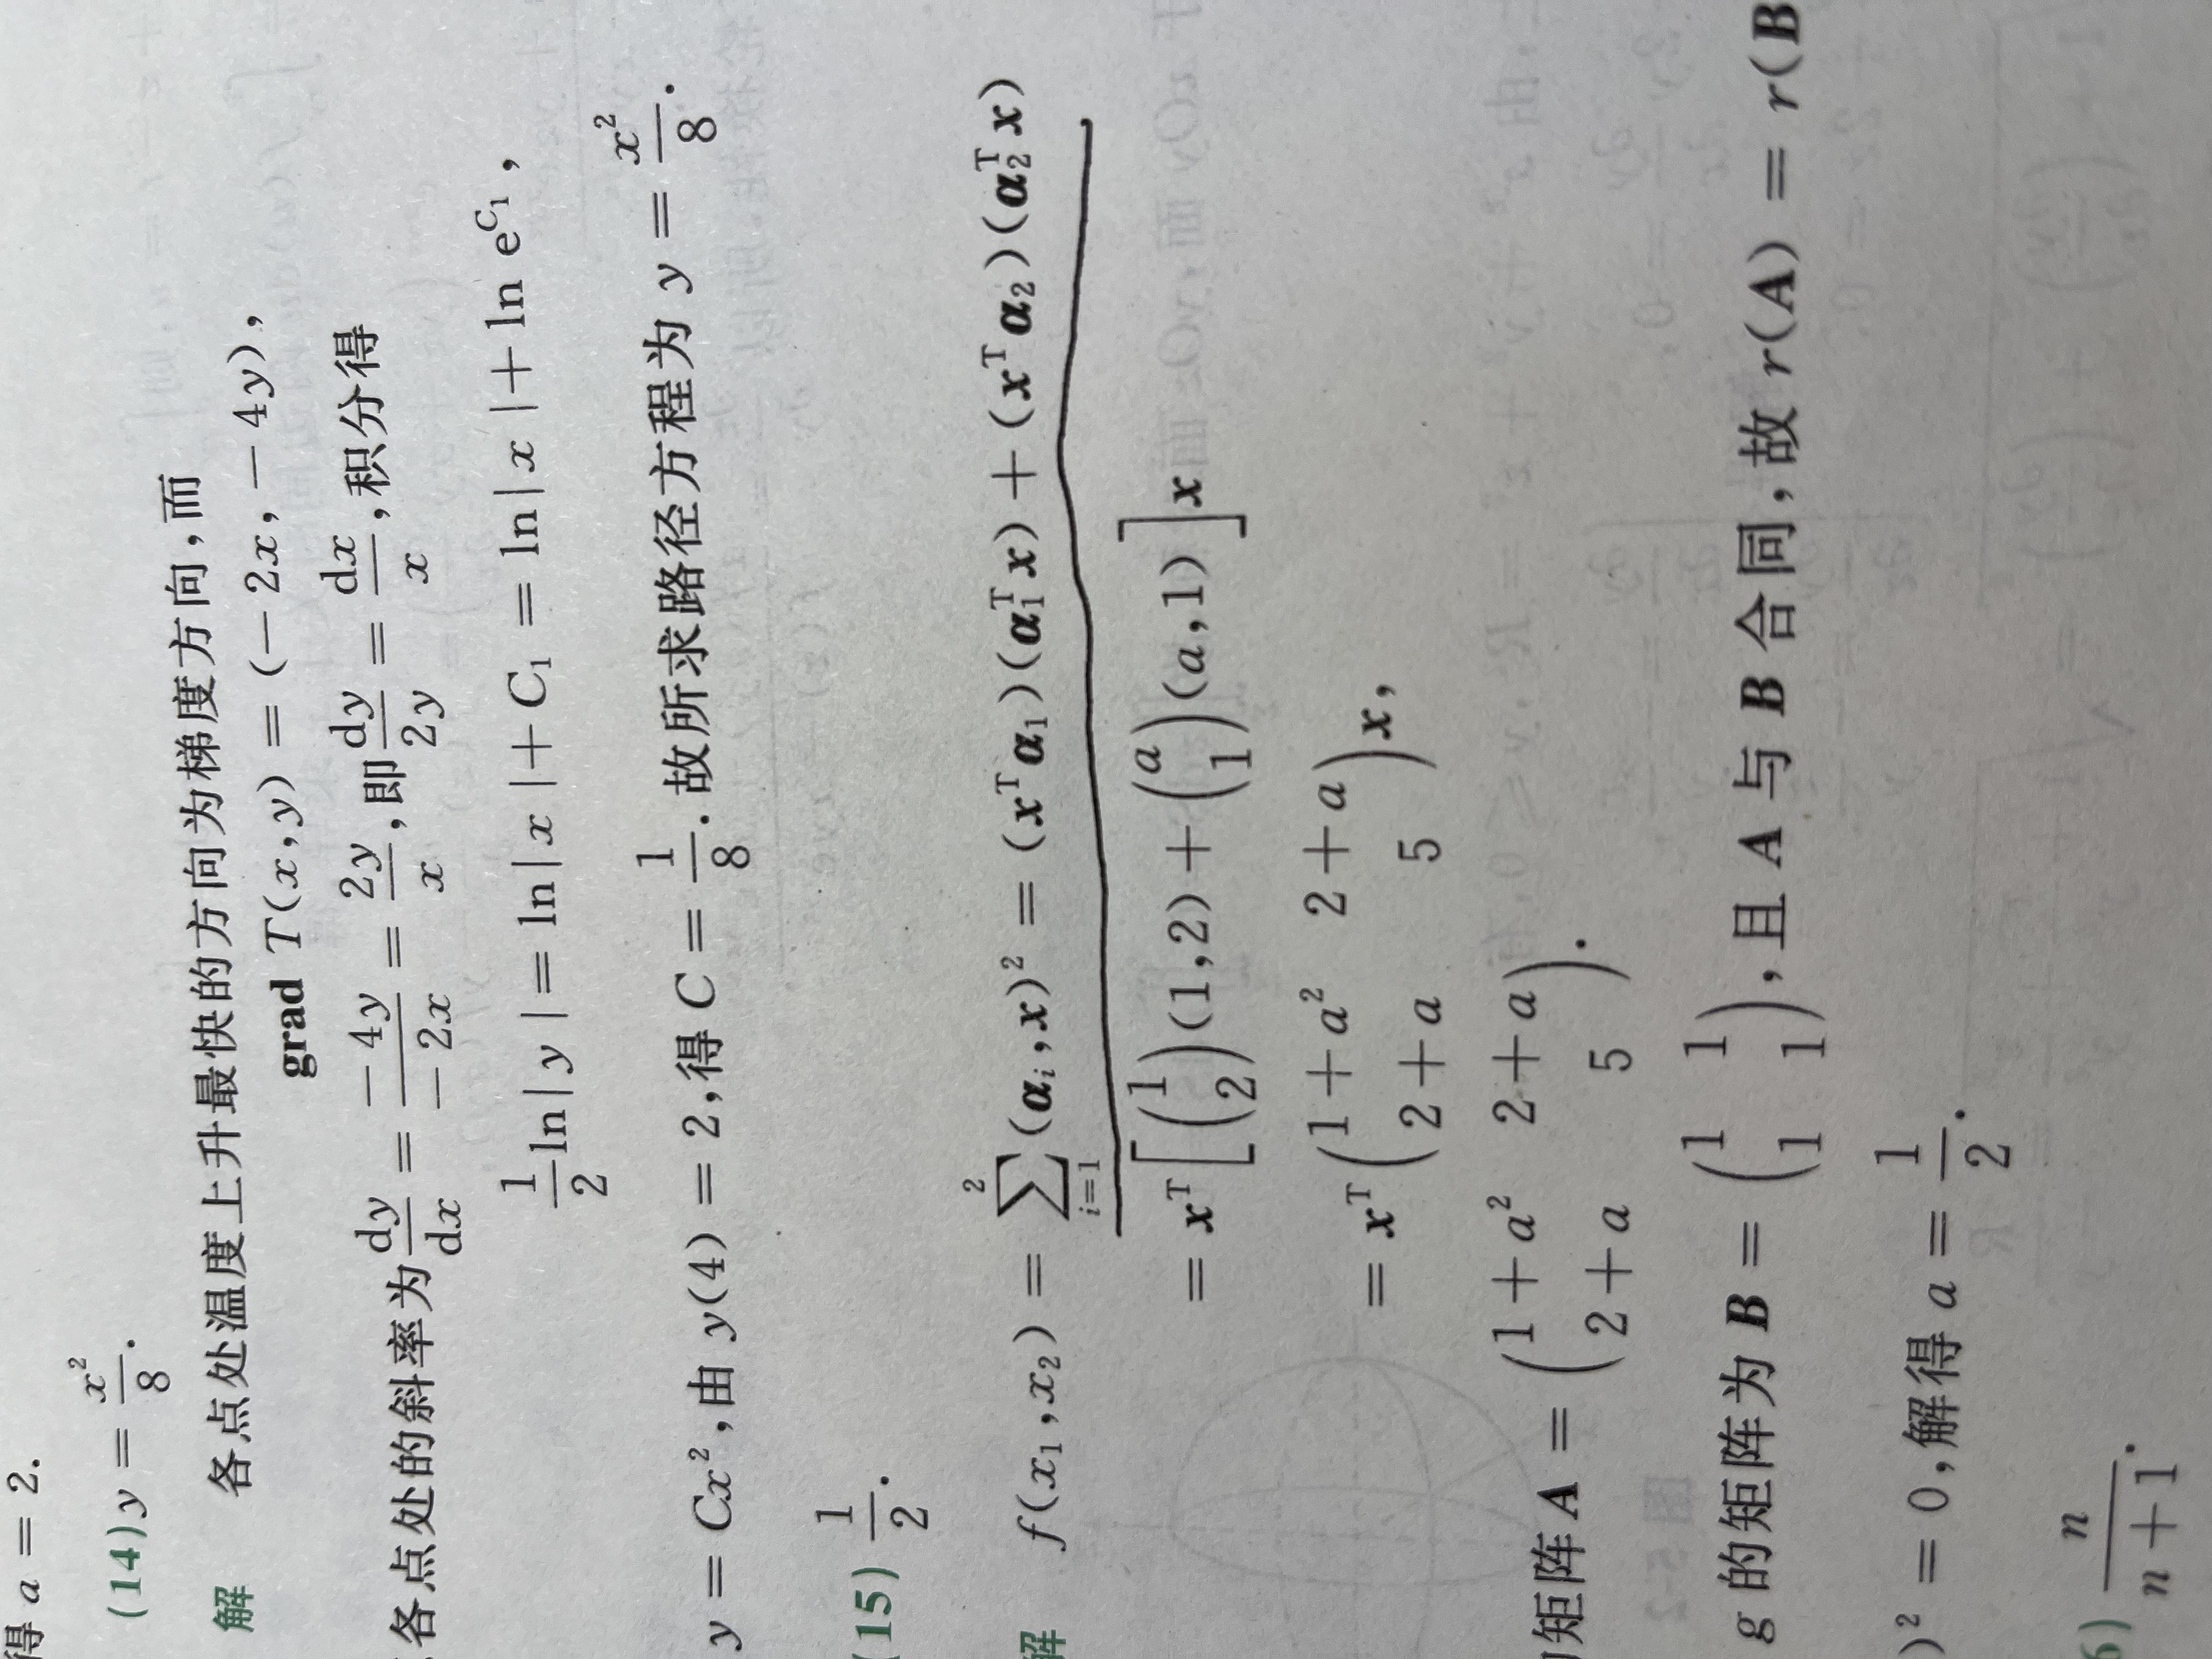 得 a = 2.
(14) y = \frac{x^2}{8}.
解 各点处温度上升最快的方向为梯度方向,而
grad T(x,y) = (-2x,-4y),
各点处的斜率为 \frac{dy}{dx} = \frac{-4y}{-2x} = \frac{2y}{x},即 \frac{dy}{2y} = \frac{dx}{x},积分得
\frac{1}{2} ln|y| = ln|x| + C_1 = ln|x| + ln e^{C_1},
y = Cx^2,由 y(4) = 2,得 C = \frac{1}{8}. 故所求路径方程为 y = \frac{x^2}{8}.
(15) \frac{1}{2}.
解 f(x_1,x_2) = \sum_{i=1}^{2} (α_i,x)^2 = (x^T α_1)(α_1^T x) + (x^T α_2)(α_2^T x)
= x^T [ \binom{1}{2} (1,2) + \binom{a}{1} (a,1) ] x
= x^T \begin{pmatrix} 1+a^2 & 2+a \\ 2+a & 5 \end{pmatrix} x,
矩阵 A = \begin{pmatrix} 1+a^2 & 2+a \\ 2+a & 5 \end{pmatrix}.
g 的矩阵为 B = \begin{pmatrix} 1 & 1 \\ 1 & 1 \end{pmatrix},且 A 与 B 合同,故 r(A) = r(B
)^2 = 0,解得 a = \frac{1}{2}.
6) \frac{n}{n+1}.